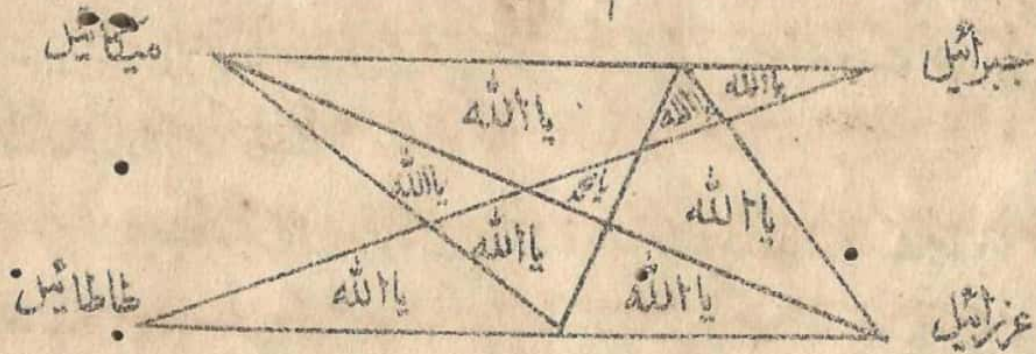 جبرائیل
میکائیل
یا اللہ
یا اللہ
اللہ
یا اللہ
یا محمد
یا اللہ
یا اللہ
یا اللہ
یا اللہ
عزرائیل
طاطائیل